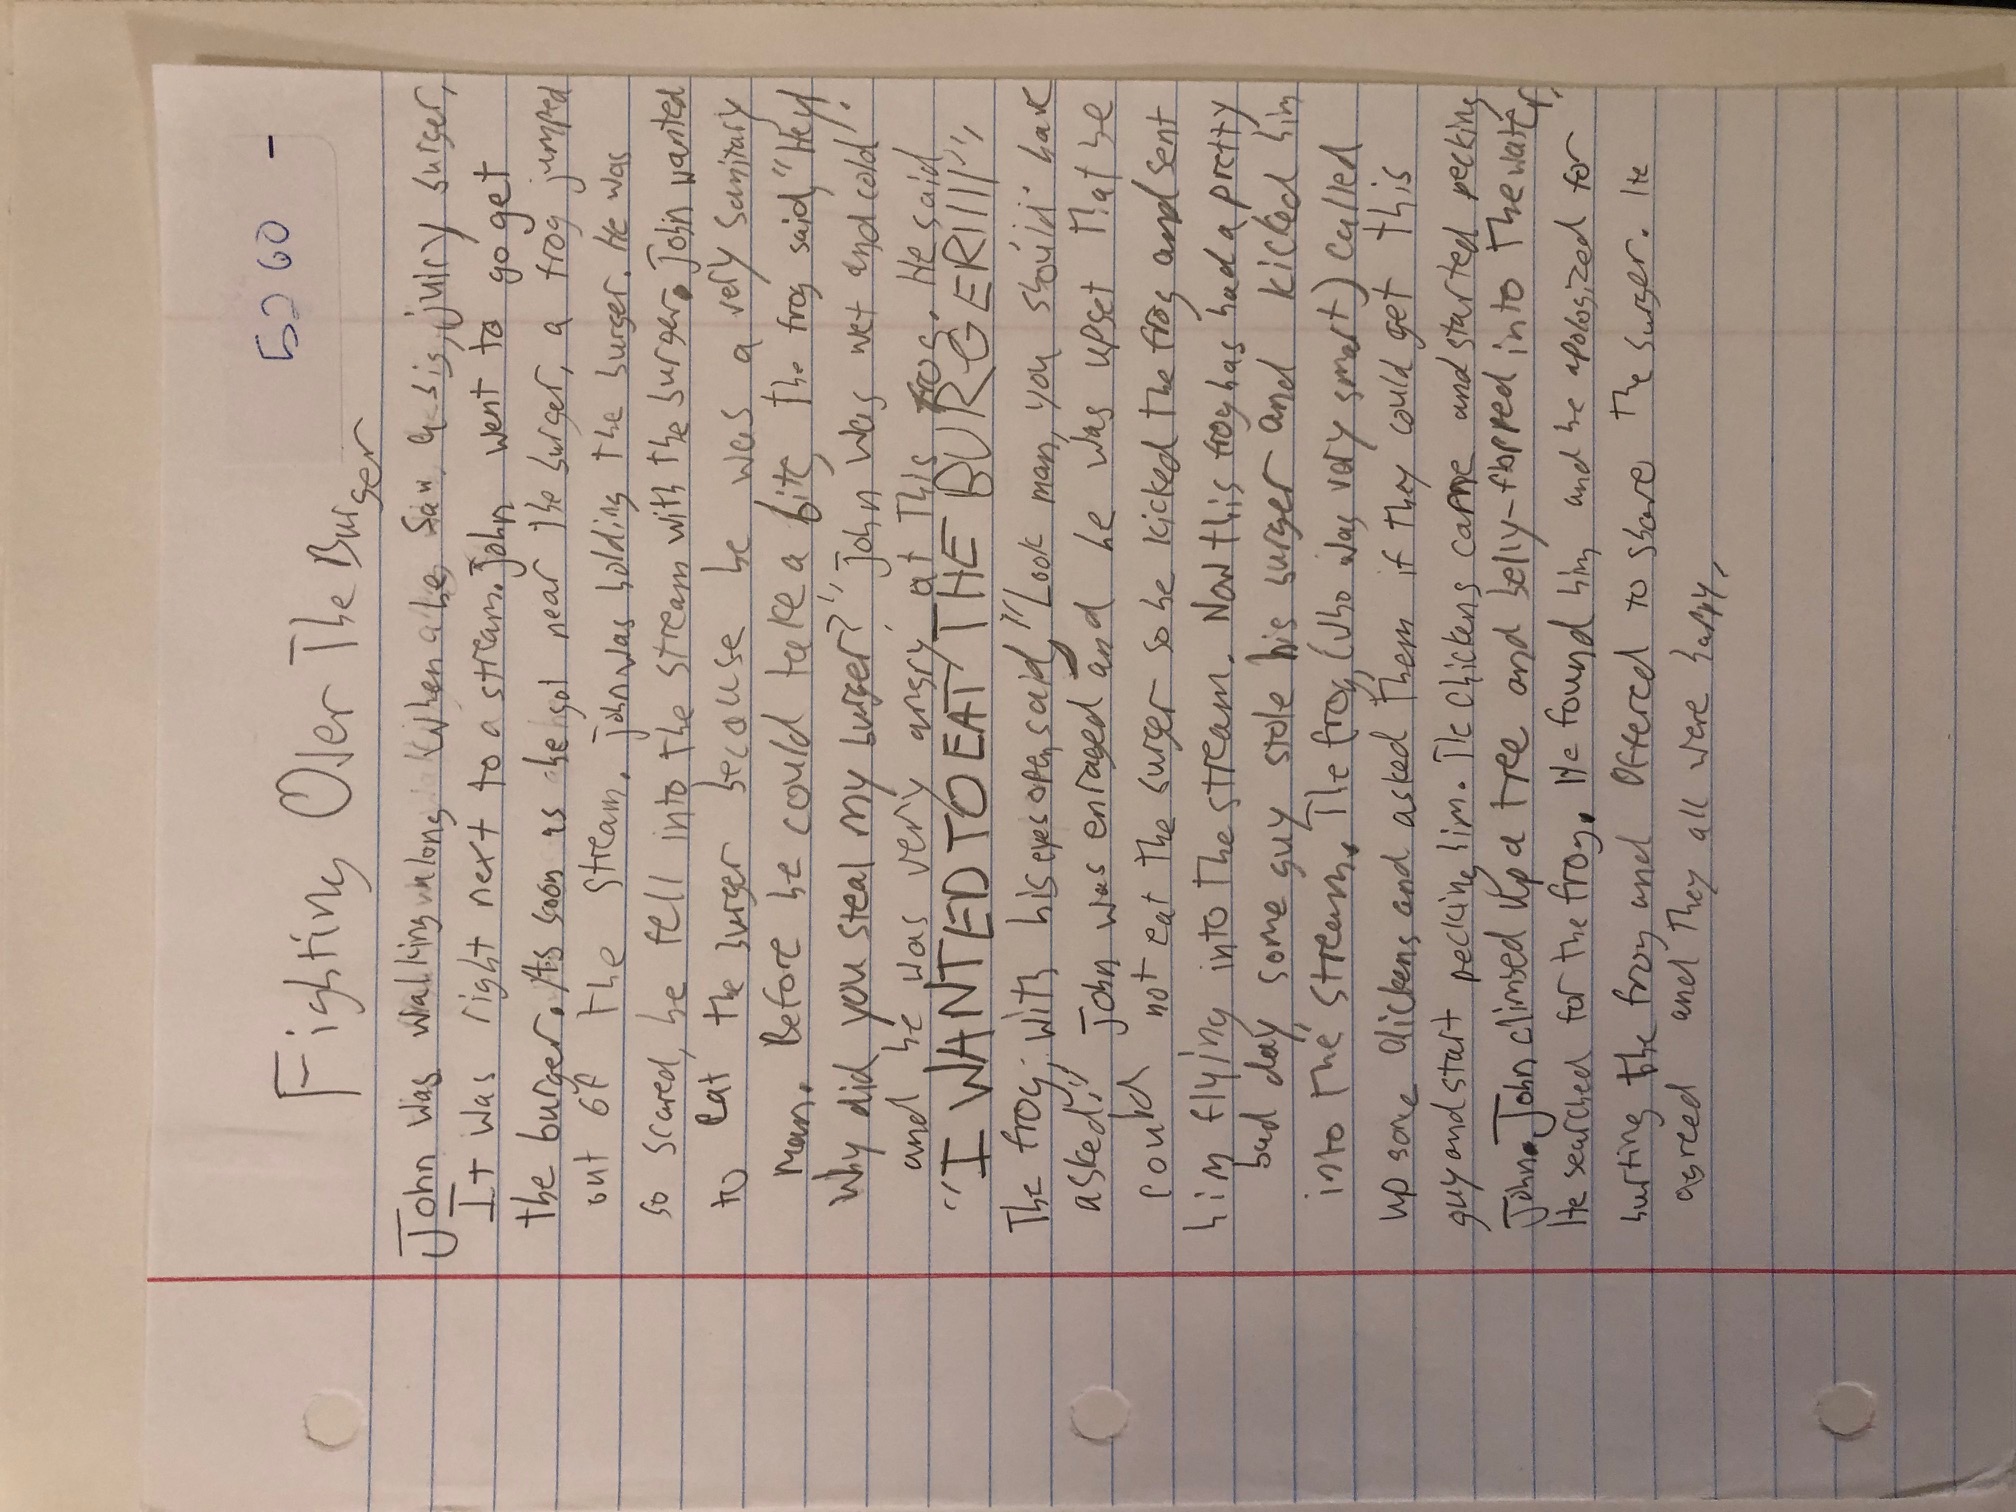 5260 -
Fighting Over The Burger
John was walking along when he saw a big, juicy burger,
It was right next to a stream. John went to go get
the burger. As soon as he got near the burger, a frog jumped
out of the stream. John was holding the burger. He was
so scared, he fell into the stream with the burger. John wanted
to eat the burger because he was a very sanitary
man. Before he could take a bite, the frog said, "Hey!
Why did you steal my burger?" John was wet and cold
and he was very angry at this frog. He said
"I WANTED TO EAT THE BURGER!!!!!"
The frog, with his eyes open, said, "Look man, you should have
asked." John was enraged and he was upset that he
could not eat the burger so he kicked the frog and sent
him flying into the stream. Now this frog has had a pretty
bad day, some guy stole his burger and kicked him
into the stream. The frog, (who was very smart) called
up some chickens and asked them if they could get this
guy and start pecking him. The chickens came and started pecking
John. John climbed up a tree and belly-flopped into the water.
He searched for the frog. He found him and he apologized for
hurting the frog and offered to share the burger. He
agreed and they all were happy.